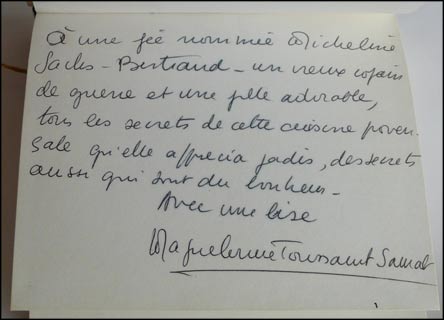 À une fée nommée Micheline
Sachs-Bertrand - un vieux copain
de guerre et une fille adorable,
tous les secrets de cette cuisine proven-
sale qu'elle apprécia jadis, des secrets
aussi qui sont du bonheur -
Avec une bise
Maguelonne Toussaint Samat